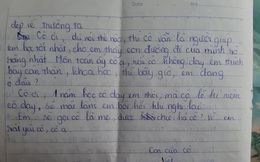 đẹp về trường ta
Cô ơi, dù nói thế nào, thì cô vẫn là người giúp
em họ rất nhất, cho em thấy con đường đi của mình học
nặng nhất. Môn toán ấy cô ạ, nếu cô không dạy em trình
bày cẩn thận, khoa học thì bây giờ, em đang
ở đâu?
Cô ơi, 1 năm học cô dạy em thôi, mà có lẽ kỉ niệm
cô dạy, sẽ mãi làm em bồi hồi khi nghĩ lại
Em sẽ gọi cô là mẹ, được cho hả cô? Vì em
rất yêu cô, cô ạ
Con của cô